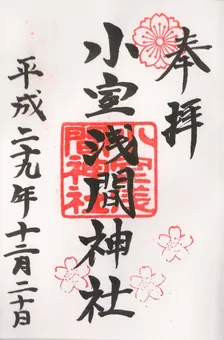 奉拝
小室浅間神社
小室淺間神社
平成二十九年十二月二十日